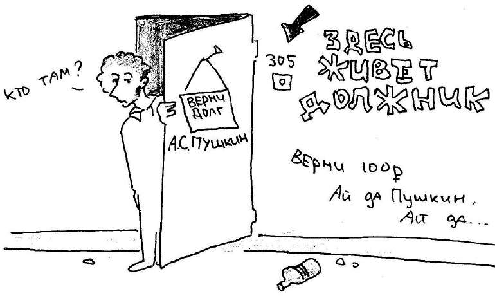 КТО ТАМ?
ВЕРНИ
ДОЛГ
А.С. ПУШКИН
305
ЗДЕСЬ
ЖИВЕТ
ДОЛЖНИК
ВЕРНИ 100р
Ай да Пушкин,
Ай да...